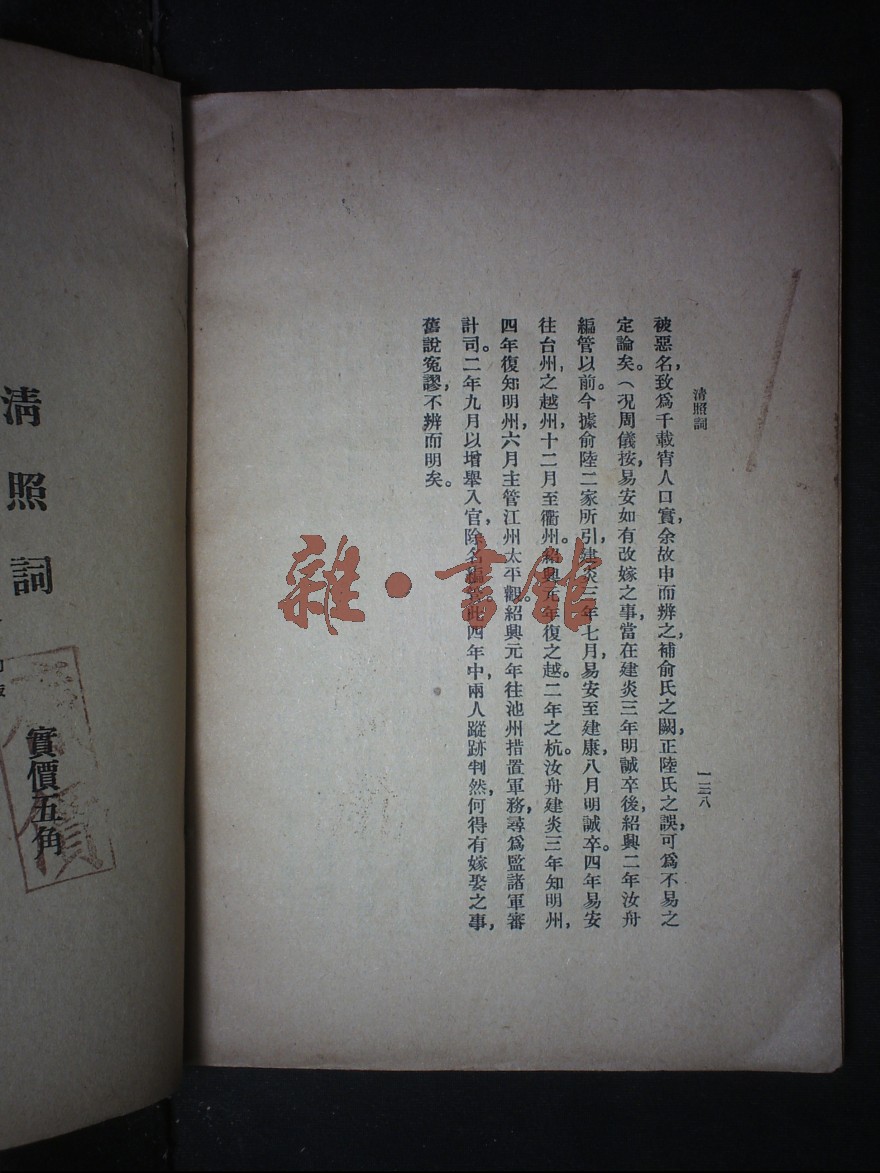 清照詞
一三八
被惡名，致爲千載宵人口實，余故申而辨之，補俞氏之闕，正陸氏之誤，可爲不易之
定論矣。（况周儀按，易安如有改嫁之事，當在建炎三年明誠卒後，紹興二年汝舟
編管以前。今據俞陸二家所引，建炎三年七月，易安至建康，八月明誠卒。四年易安
往台州，之越州，十二月至衢州。紹興元年復之越。二年之杭。汝舟建炎三年知明州，
四年復知明州，六月主管江州太平觀。紹興元年往池州措置軍務，尋爲監諸軍審
計司。二年九月以增舉入官，除名編管。此四年中，兩人蹤跡判然，何得有嫁娶之事，
舊說冤謬，不辨而明矣。
雜·書館
清照詞
實價五角